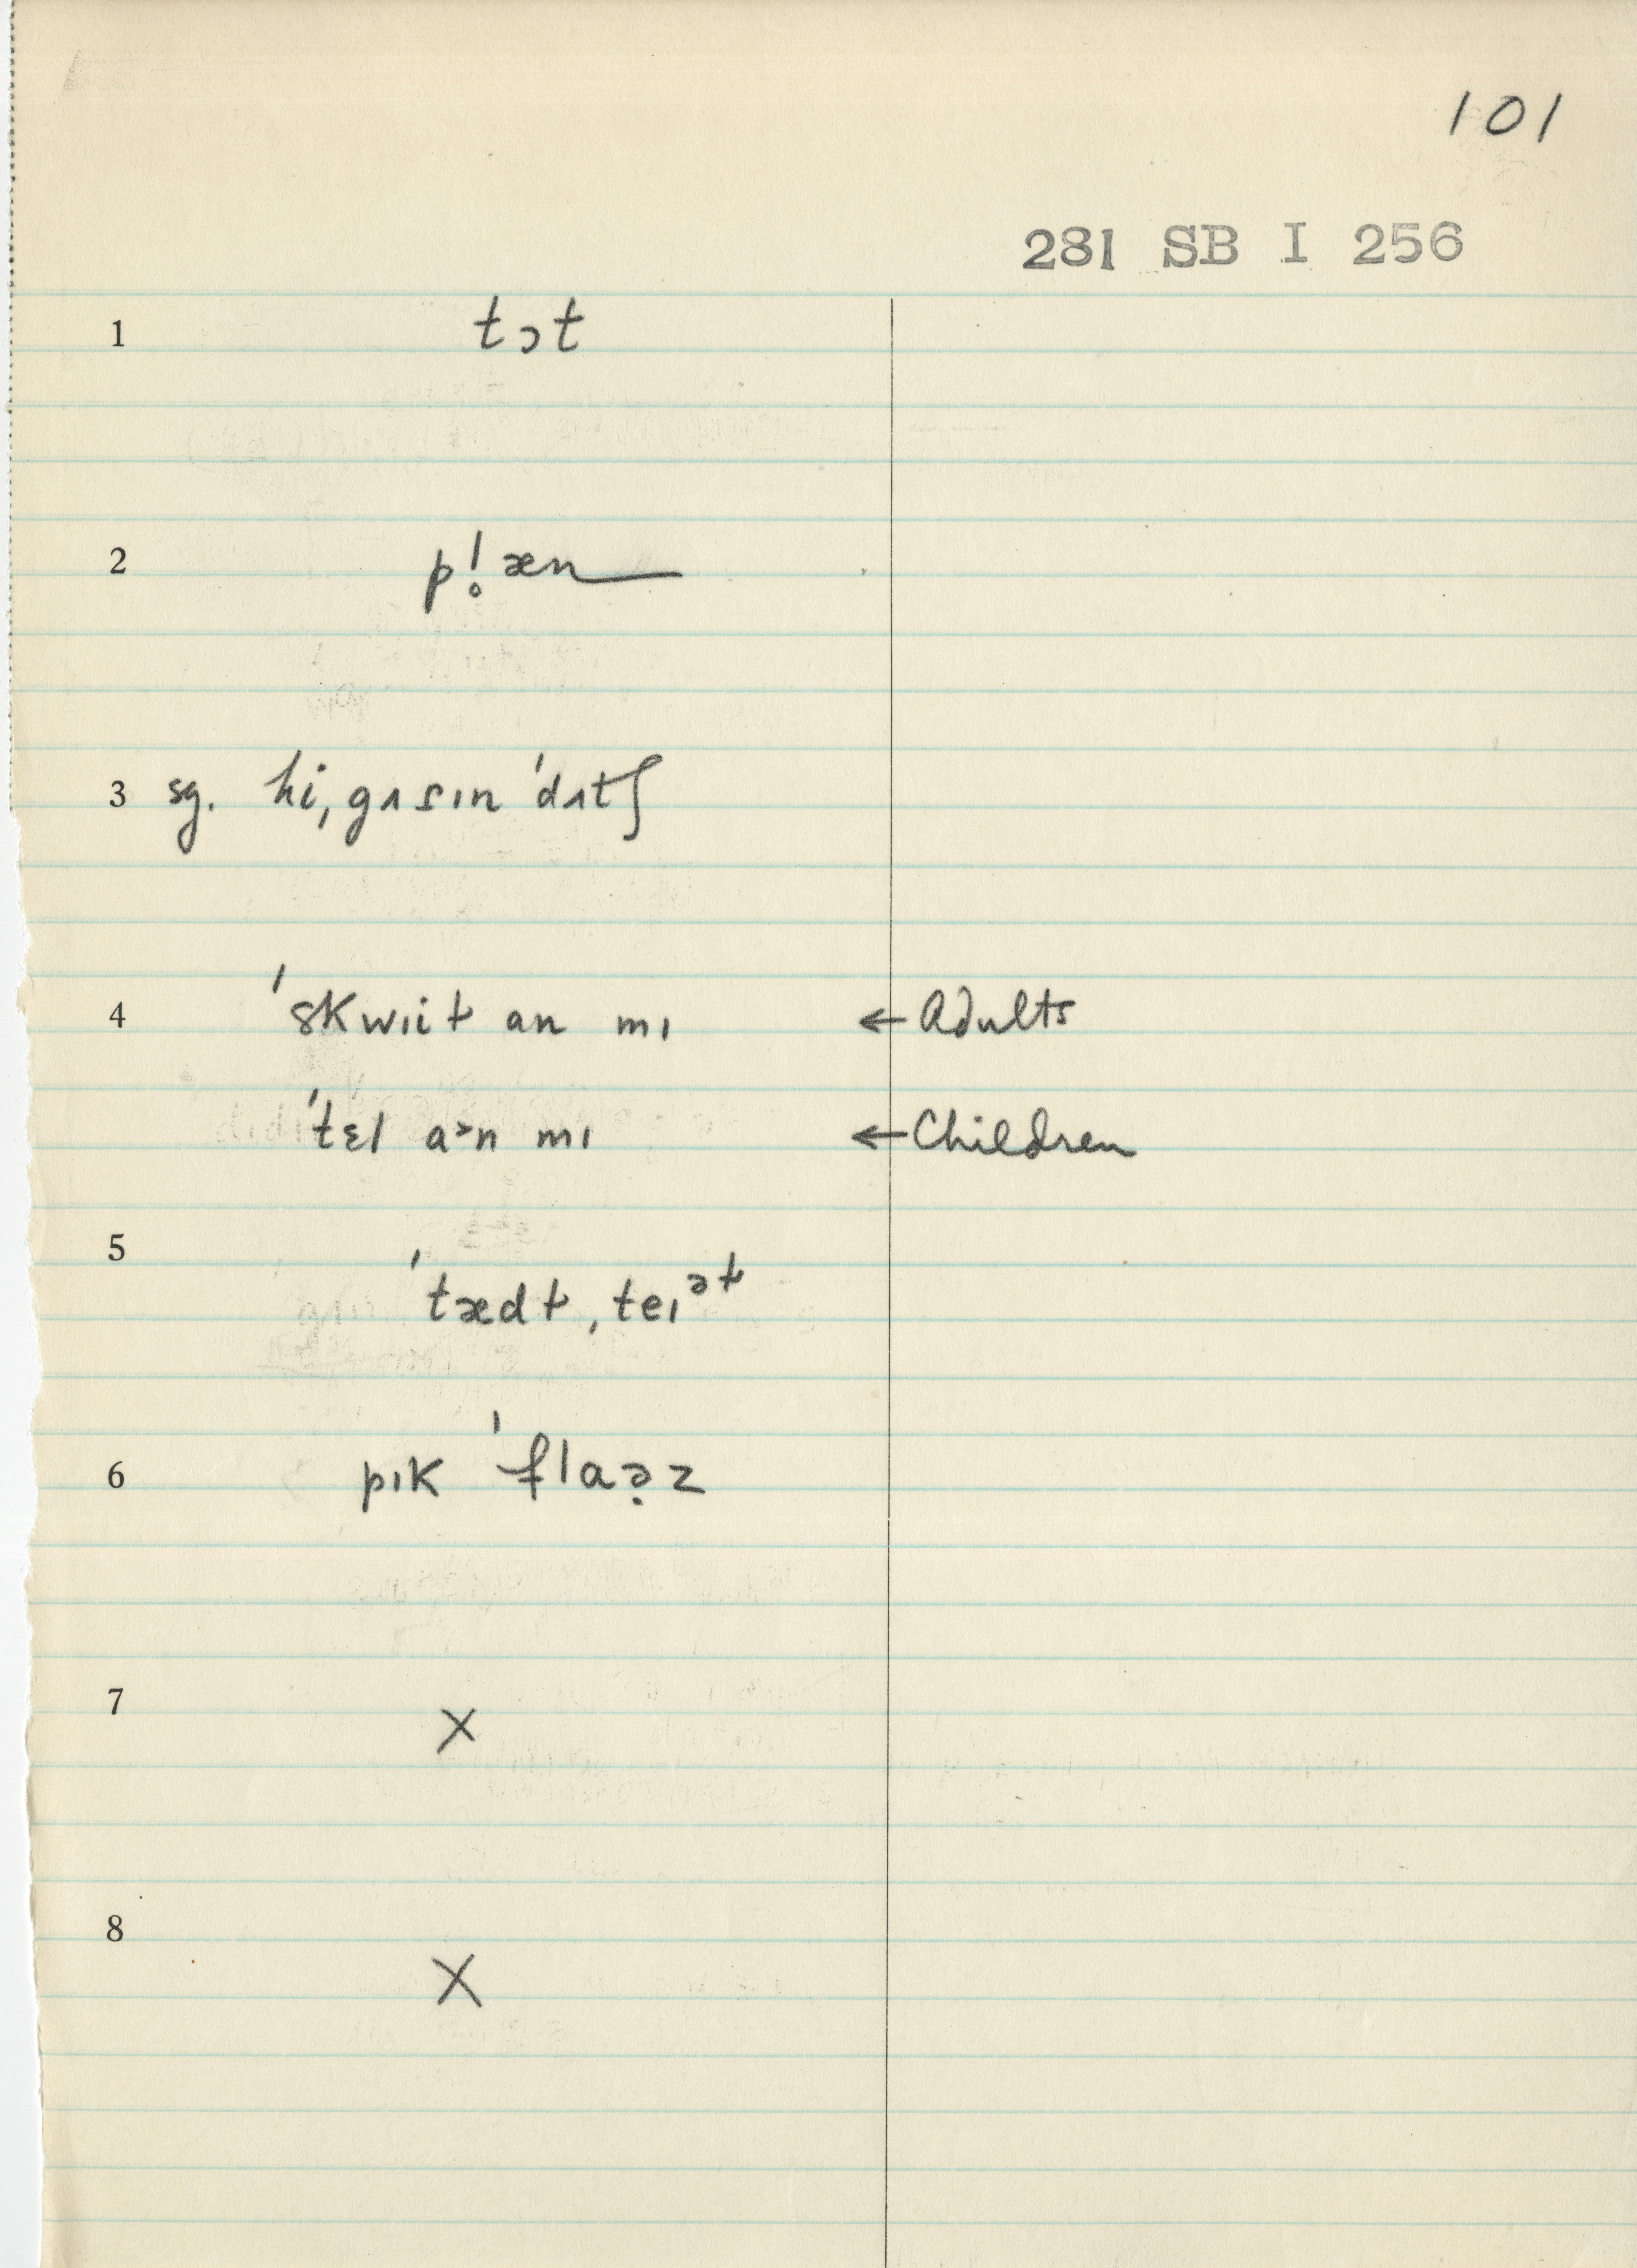 101
281 SB I 256
1 tɔt
2 p!̥æn
3 sg. hi, gʌsɪn 'dʌtʃ
4 'skwɪit an mɪ ← Adults
'tɛl a˃n mɪ ← Children
5 'tædt, teɪᵊᵗ
6 pɪk 'flaə̣z
7 X
8 X